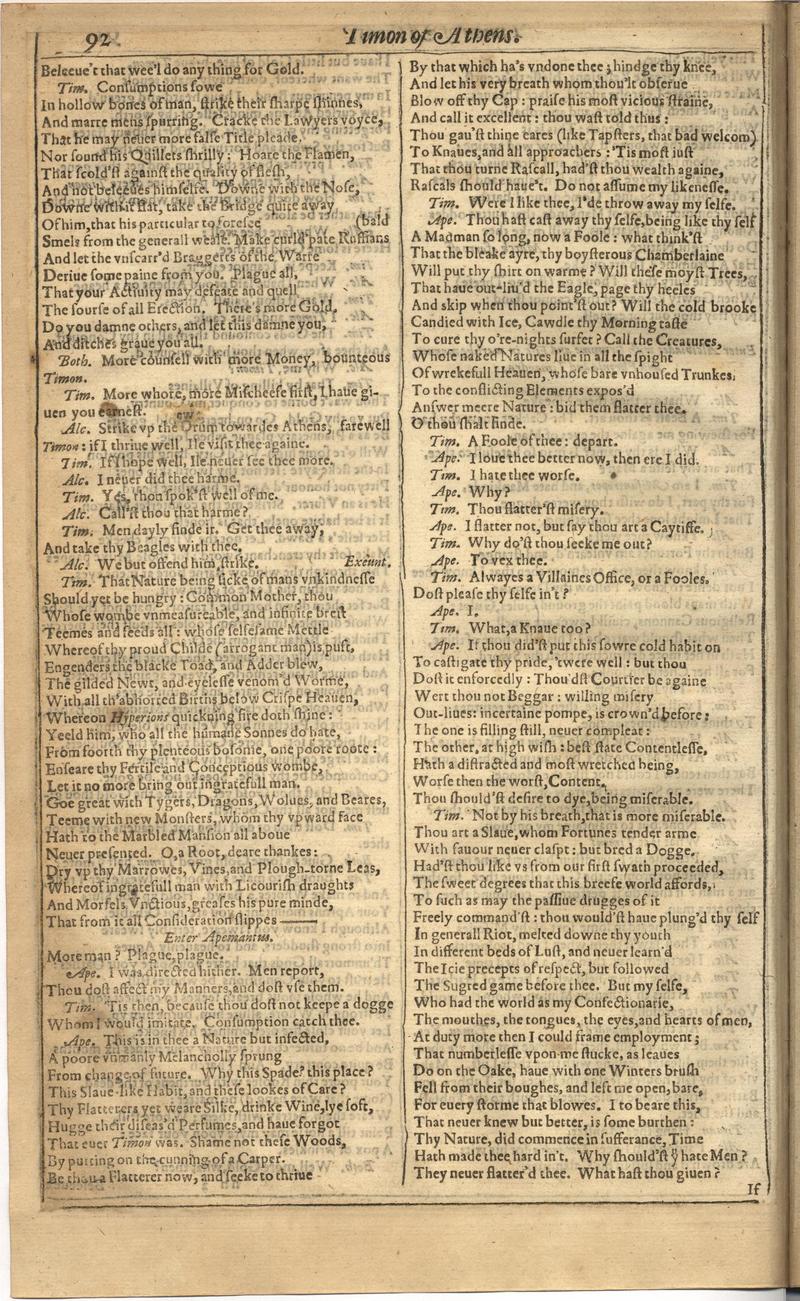 92
Timon of Athens.
Beleeue't that wee'l do any thing for Gold.
Tim. Consumptions sowe
In hollow bones of man, strike their sharpe shinnes,
And marre mens spurring. Cracke the Lawyers voyce,
That he may neuer more false Title pleade,
Nor sound his Quillets shrilly: Hoare the Flamen,
That scold'st against the quality of flesh,
And not beleeues himselfe. Downe with the Nose,
Downe with it flat, take the Bridge quite away
Of him, that his particular to foresee (bald
Smels from the generall weale. Make curld pate Ruffians
And let the vnscarr'd Braggerts of the Warre
Deriue some paine from you. Plague all,
That your Actiuity may defeate and quell
The sourse of all Erection. There's more Gold.
Do you damne others, and let this damne you,
And ditches graue you all.
Both. More counsell with more Money, bounteous
Timon.
Tim. More whore, more Mischeefe first, I haue gi-
uen you earnest.
Alc. Strike vp the Drum towardes Athens, farewell
Timon: if I thriue well, Ile visit thee againe.
Tim. If I hope well, Ile neuer see thee more.
Alc. I neuer did thee harme.
Tim. Yes, thou spok'st well of me.
Alc. Call'st thou that harme?
Tim. Men dayly finde it. Get thee away,
And take thy Beagles with thee.
Alc. We but offend him, strike. Exeunt.
Tim. That Nature being sicke of mans vnkindnesse
Should yet be hungry: Common Mother, thou
Whose wombe vnmeasureable, and infinite brest
Teemes and feeds all: whose selfesame Mettle
Whereof thy proud Childe (arrogant man) is puft,
Engenders the blacke Toad, and Adder blew,
The gilded Newt, and eyelesse venom'd Worme,
With all th'abhorred Births below Crispe Heauen,
Whereon Hyperions quickning fire doth shine:
Yeeld him, who all the humane Sonnes do hate,
From foorth thy plenteous bosome, one poore roote:
Enseare thy Fertile and Conceptious wombe,
Let it no more bring out ingratefull man.
Goe great with Tygers, Dragons, Wolues, and Beares,
Teeme with new Monsters, whom thy vpward face
Hath to the Marbled Mansion all aboue
Neuer presented. O, a Root, deare thankes:
Dry vp thy Marrowes, Vines, and Plough-torne Leas,
Whereof ingratefull man with Licourish draughts
And Morsels Vnctious, greases his pure minde,
That from it all Consideration slippes———
Enter Apemantus.
More man? Plague, plague.
Ape. I was directed hither. Men report,
Thou dost affect my Manners, and dost vse them.
Tim. 'Tis then, because thou dost not keepe a dogge
Whom I would imitate. Consumption catch thee.
Ape. This is in thee a Nature but infected,
A poore vnmanly Melancholly sprung
From change of future. Why this Spade? this place?
This Slaue-like Habit, and these lookes of Care?
Thy Flatterers yet weare Silke, drinke Wine, lye soft,
Hugge their diseas'd Perfumes, and haue forgot
That euer Timon was. Shame not these Woods,
By putting on the cunning of a Carper.
Be thou a Flatterer now, and seeke to thriue
By that which ha's vndone thee; hindge thy knee,
And let his very breath whom thou'lt obserue
Blow off thy Cap: praise his most vicious straine,
And call it excellent: thou wast told thus:
Thou gau'st thine eares (like Tapsters, that bad welcom)
To Knaues, and all approachers: 'Tis most iust
That thou turne Rascall, had'st thou wealth againe,
Rascals should haue't. Do not assume my likenesse.
Tim. Were I like thee, I'de throw away my selfe.
Ape. Thou hast cast away thy selfe, being like thy self
A Madman so long, now a Foole: what think'st
That the bleake ayre, thy boysterous Chamberlaine
Will put thy shirt on warme? Will these moyst Trees,
That haue out-liu'd the Eagle, page thy heeles
And skip when thou point'st out? Will the cold brooke
Candied with Ice, Cawdle thy Morning taste
To cure thy o're-nights surfet? Call the Creatures,
Whose naked Natures liue in all the spight
Of wrekefull Heauen, whose bare vnhoused Trunkes,
To the conflicting Elements expos'd
Answer meere Nature: bid them flatter thee.
O thou shalt finde.
Tim. A Foole of thee: depart.
Ape. I loue thee better now, then ere I did.
Tim. I hate thee worse.
Ape. Why?
Tim. Thou flatter'st misery.
Ape. I flatter not, but say thou art a Caytiffe.
Tim. Why do'st thou seeke me out?
Ape. To vex thee.
Tim. Alwayes a Villaines Office, or a Fooles.
Dost please thy selfe in't?
Ape. I.
Tim. What, a Knaue too?
Ape. If thou did'st put this sowre cold habit on
To castigate thy pride, 'twere well: but thou
Dost it enforcedly: Thou'dst Courtier be againe
Wert thou not Beggar: willing misery
Out-liues: incertaine pompe, is crown'd before:
The one is filling still, neuer compleat:
The other, at high wish: best state Contentlesse,
Hath a distracted and most wretched being,
Worse then the worst, Content.
Thou should'st desire to dye, being miserable.
Tim. Not by his breath, that is more miserable.
Thou art a Slaue, whom Fortunes tender arme
With fauour neuer claspt: but bred a Dogge.
Had'st thou like vs from our first swath proceeded,
The sweet degrees that this breefe world affords,
To such as may the passiue drugges of it
Freely command'st: thou would'st haue plung'd thy self
In generall Riot, melted downe thy youth
In different beds of Lust, and neuer learn'd
The Icie precepts of respect, but followed
The Sugred game before thee. But my selfe,
Who had the world as my Confectionarie,
The mouthes, the tongues, the eyes, and hearts of men,
At duty more then I could frame employment;
That numberlesse vpon me stucke, as leaues
Do on the Oake, haue with one Winters brush
Fell from their boughes, and left me open, bare,
For euery storme that blowes. I to beare this,
That neuer knew but better, is some burthen:
Thy Nature, did commence in sufferance, Time
Hath made thee hard in't. Why should'st yͧ hate Men?
They neuer flatter'd thee. What hast thou giuen?
If